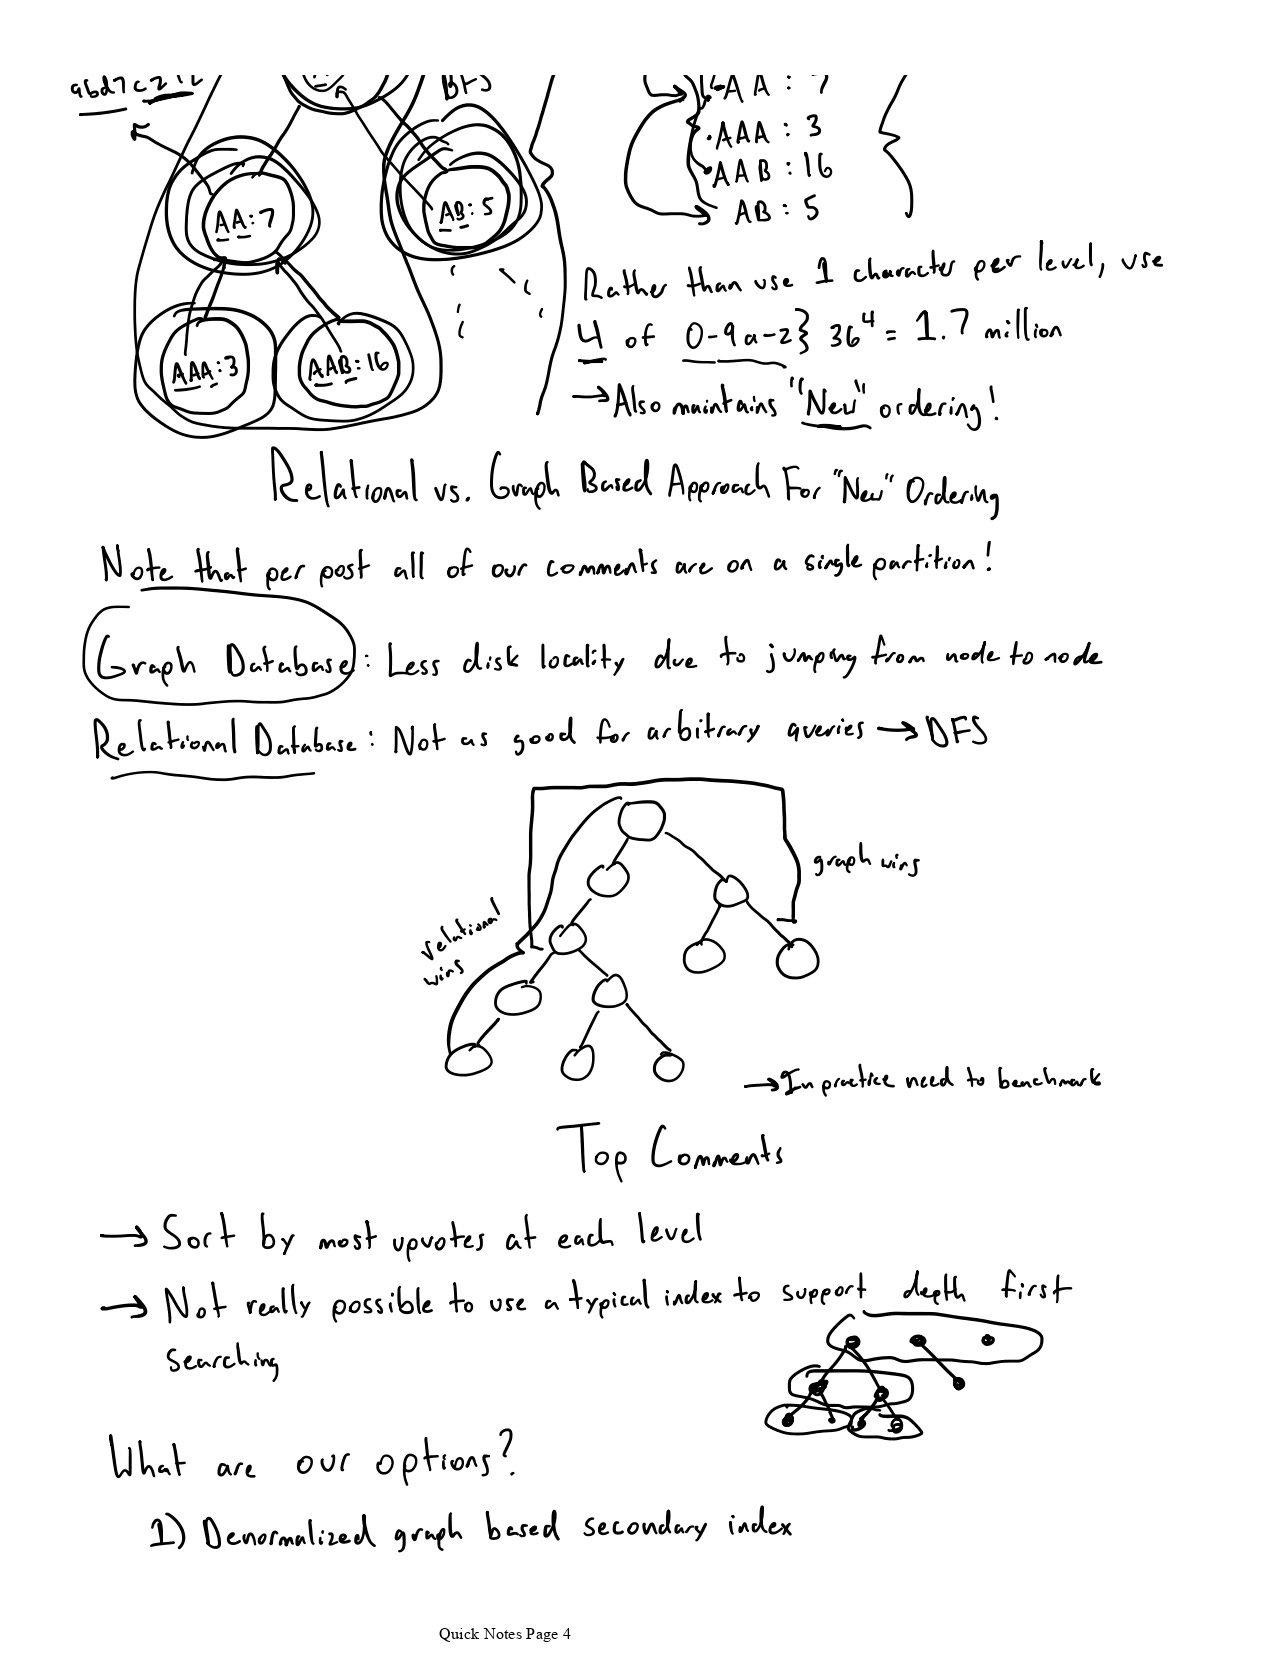 BFS
AA : 7
AAA : 3
AAB : 16
AB : 5
AA:7
AB:5
AAA:3
AAB:16
Rather than use 1 character per level, use
4 of 0-9a-z} 36^4 = 1.7 million
→ Also maintains "New" ordering!
Relational vs. Graph Based Approach For "New" Ordering
Note that per post all of our comments are on a single partition!
Graph Database: Less disk locality due to jumping from node to node
Relational Database: Not as good for arbitrary queries → DFS
graph wins
relational
wins
→ In practice need to benchmark
Top Comments
→ Sort by most upvotes at each level
→ Not really possible to use a typical index to support depth first
searching
What are our options?
1) Denormalized graph based secondary index
Quick Notes Page 4